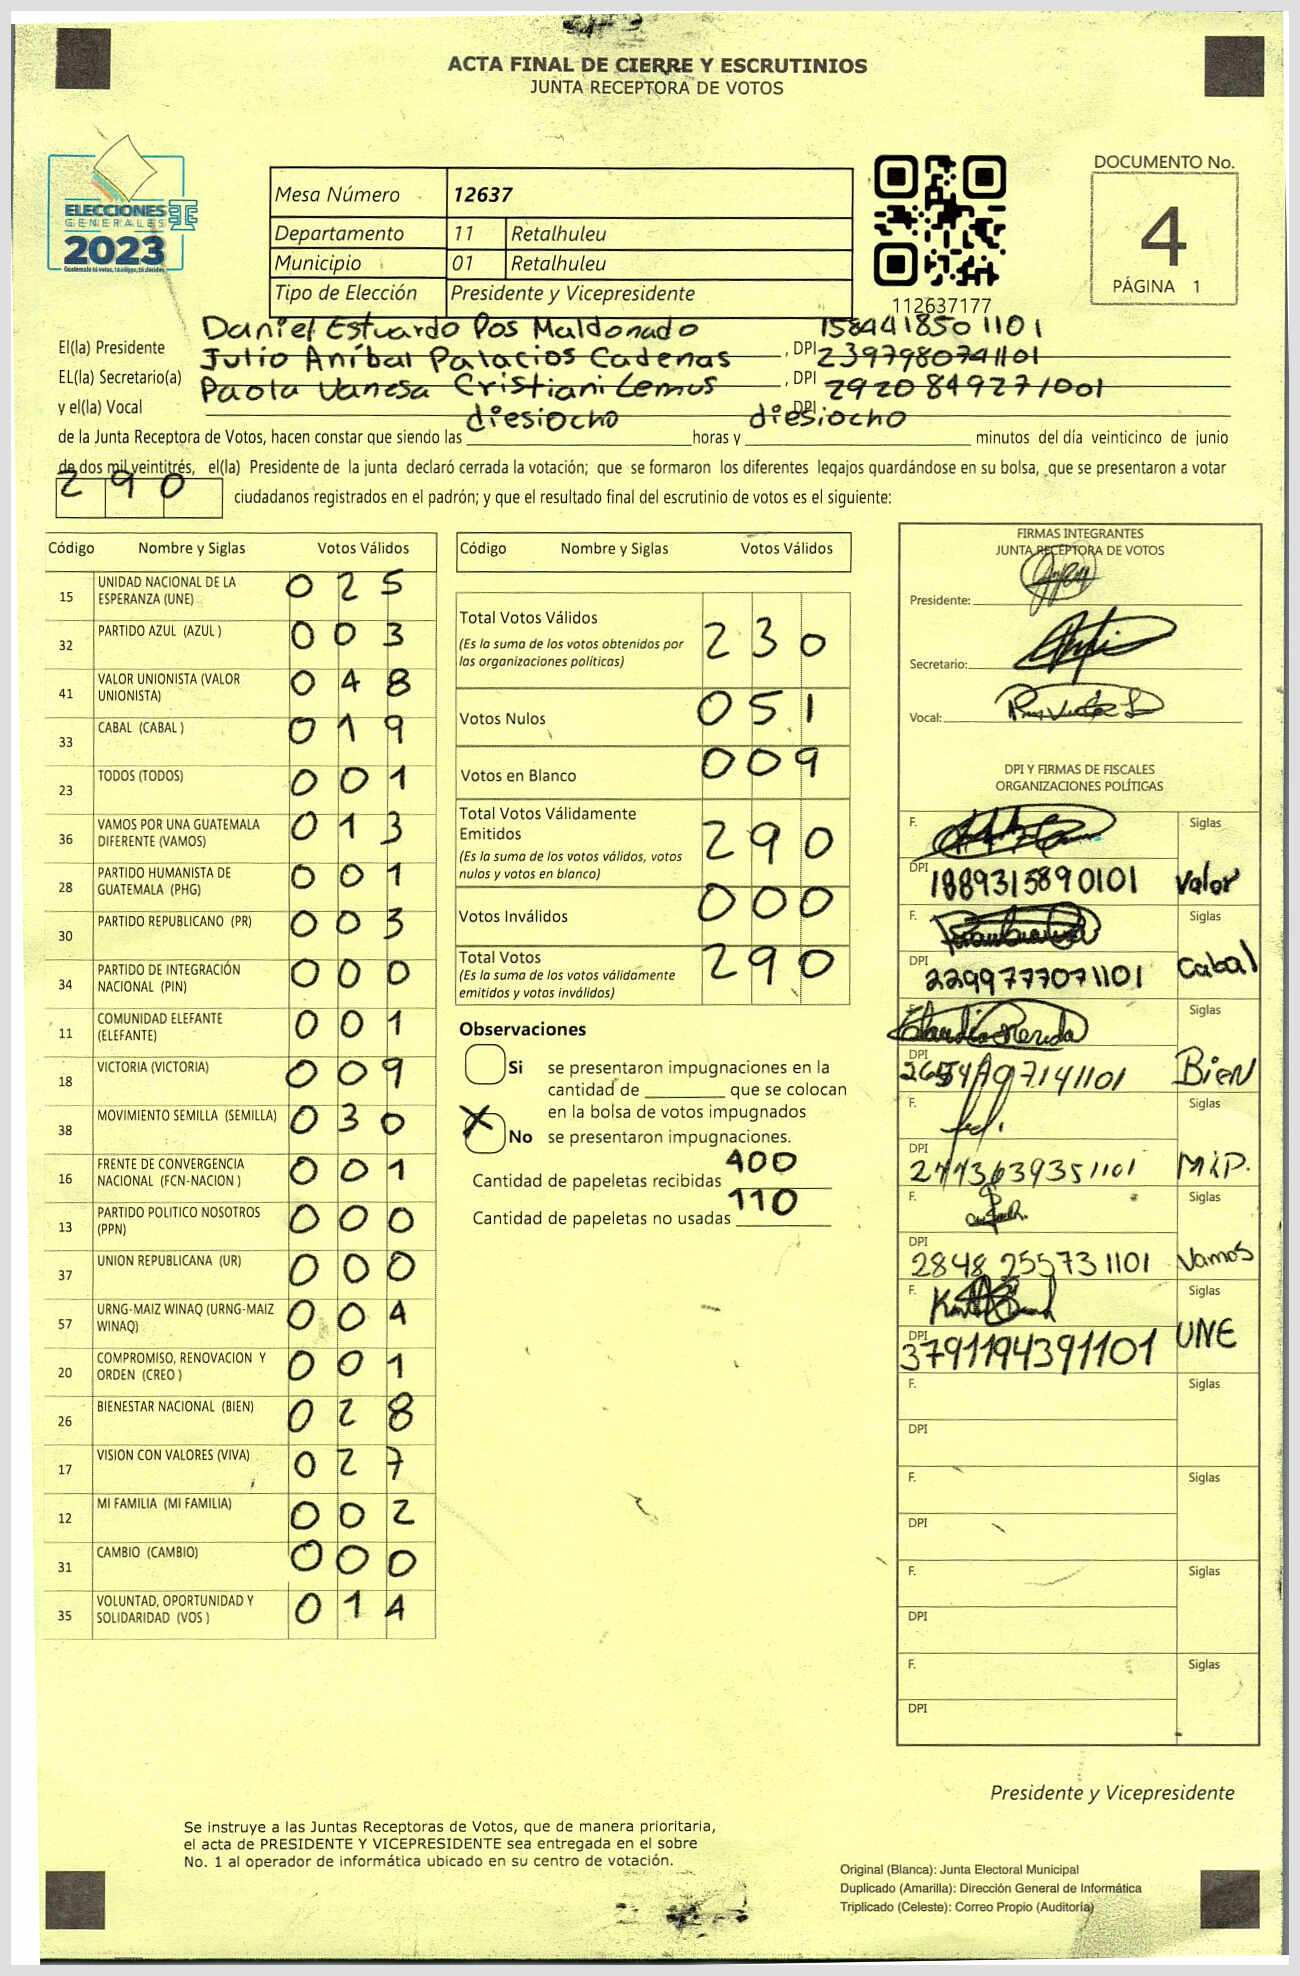 ACTA FINAL DE CIERRE Y ESCRUTINIOS
JUNTA RECEPTORA DE VOTOS
ELECCIONES
GENERALES
2023
Guatemala tú votas, tú eliges, tú decides
Mesa Número 12637
Departamento 11 Retalhuleu
Municipio 01 Retalhuleu
Tipo de Elección Presidente y Vicepresidente
112637177
DOCUMENTO No.
4
PÁGINA 1
El(la) Presidente Daniel Estuardo Pos Maldonado 1584418501101
EL(la) Secretario(a) Julio Aníbal Palacios Cadenas , DPI 2397980741101
y el(la) Vocal Paola Vanesa Cristiani Lemus , DPI 2920849271001
DPI
de la Junta Receptora de Votos, hacen constar que siendo las diesiocho horas y diesiocho minutos del día veinticinco de junio
de dos mil veintitrés, el(la) Presidente de la junta declaró cerrada la votación; que se formaron los diferentes legajos guardándose en su bolsa, que se presentaron a votar
290 ciudadanos registrados en el padrón; y que el resultado final del escrutinio de votos es el siguiente:
Código Nombre y Siglas Votos Válidos
15 UNIDAD NACIONAL DE LA ESPERANZA (UNE) 025
32 PARTIDO AZUL (AZUL ) 003
41 VALOR UNIONISTA (VALOR UNIONISTA) 048
33 CABAL (CABAL ) 019
23 TODOS (TODOS) 001
36 VAMOS POR UNA GUATEMALA DIFERENTE (VAMOS) 013
28 PARTIDO HUMANISTA DE GUATEMALA (PHG) 001
30 PARTIDO REPUBLICANO (PR) 003
34 PARTIDO DE INTEGRACIÓN NACIONAL (PIN) 000
11 COMUNIDAD ELEFANTE (ELEFANTE) 001
18 VICTORIA (VICTORIA) 009
38 MOVIMIENTO SEMILLA (SEMILLA) 030
16 FRENTE DE CONVERGENCIA NACIONAL (FCN-NACION ) 001
13 PARTIDO POLITICO NOSOTROS (PPN) 000
37 UNION REPUBLICANA (UR) 000
57 URNG-MAIZ WINAQ (URNG-MAIZ WINAQ) 004
20 COMPROMISO, RENOVACION Y ORDEN (CREO ) 001
26 BIENESTAR NACIONAL (BIEN) 028
17 VISION CON VALORES (VIVA) 027
12 MI FAMILIA (MI FAMILIA) 002
31 CAMBIO (CAMBIO) 000
35 VOLUNTAD, OPORTUNIDAD Y SOLIDARIDAD (VOS ) 014
Código Nombre y Siglas Votos Válidos
Total Votos Válidos 230
(Es la suma de los votos obtenidos por
las organizaciones políticas)
Votos Nulos 051
Votos en Blanco 009
Total Votos Válidamente
Emitidos 290
(Es la suma de los votos válidos, votos
nulos y votos en blanco)
Votos Inválidos 000
Total Votos 290
(Es la suma de los votos válidamente
emitidos y votos inválidos)
Observaciones
Si se presentaron impugnaciones en la
cantidad de ________ que se colocan
en la bolsa de votos impugnados
X No se presentaron impugnaciones.
Cantidad de papeletas recibidas 400
Cantidad de papeletas no usadas 110
FIRMAS INTEGRANTES
JUNTA RECEPTORA DE VOTOS
Presidente:
Secretario:
Vocal:
DPI Y FIRMAS DE FISCALES
ORGANIZACIONES POLÍTICAS
F. Siglas
DPI 1889315890101 Valor
F. Siglas
DPI 2299777071101 Cabal
Siglas
DPI Bien
F. Siglas
DPI MLP.
F. Siglas
DPI 2848 25573 1101 Vamos
F. Siglas
DPI 3791194391101 UNE
F. Siglas
DPI
F. Siglas
DPI
F. Siglas
DPI
F. Siglas
DPI
Presidente y Vicepresidente
Se instruye a las Juntas Receptoras de Votos, que de manera prioritaria,
el acta de PRESIDENTE Y VICEPRESIDENTE sea entregada en el sobre
No. 1 al operador de informática ubicado en su centro de votación.
Original (Blanca): Junta Electoral Municipal
Duplicado (Amarilla): Dirección General de Informática
Triplicado (Celeste): Correo Propio (Auditoría)